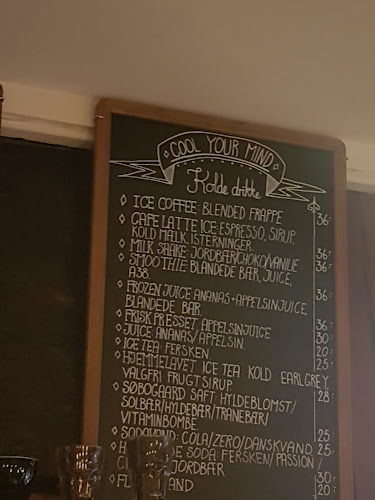 COOL YOUR MIND
Kolde drikke
ICE COFFEE BLENDED FRAPPE 36:-
CAFE LATTE ICE: ESPRESSO, SIRUP,
KOLD MÆLK, ISTERNINGER 36:-
MILK SHAKE: JORDBÆR/CHOKO/VANILIE 36:-
SMOOTHIE: BLANDEDE BÆR, JUICE,
A38. 36:-
FROZEN JUICE ANANAS + APPELSINJUICE,
BLANDEDE BÆR. 36:-
FRISKPRESSET APPELSINJUICE 30:-
JUICE: ANANAS/APPELSIN. 20:-
ICE TEA FERSKEN. 25:-
HJEMMELAVET ICE TEA KOLD EARLGREY,
VALGFRI FRUGTSIRUP. 28:-
SØBOGAARD SAFT HYLDEBLOMST/
SOLBÆR/HYLDEBÆR/TRANEBÆR/
VITAMINBOMBE. 25:-
COLA/ZERO/DANSKVAND. 25:-
SODA: FERSKEN/PASSION/
JORDBÆR 30:-
20:-